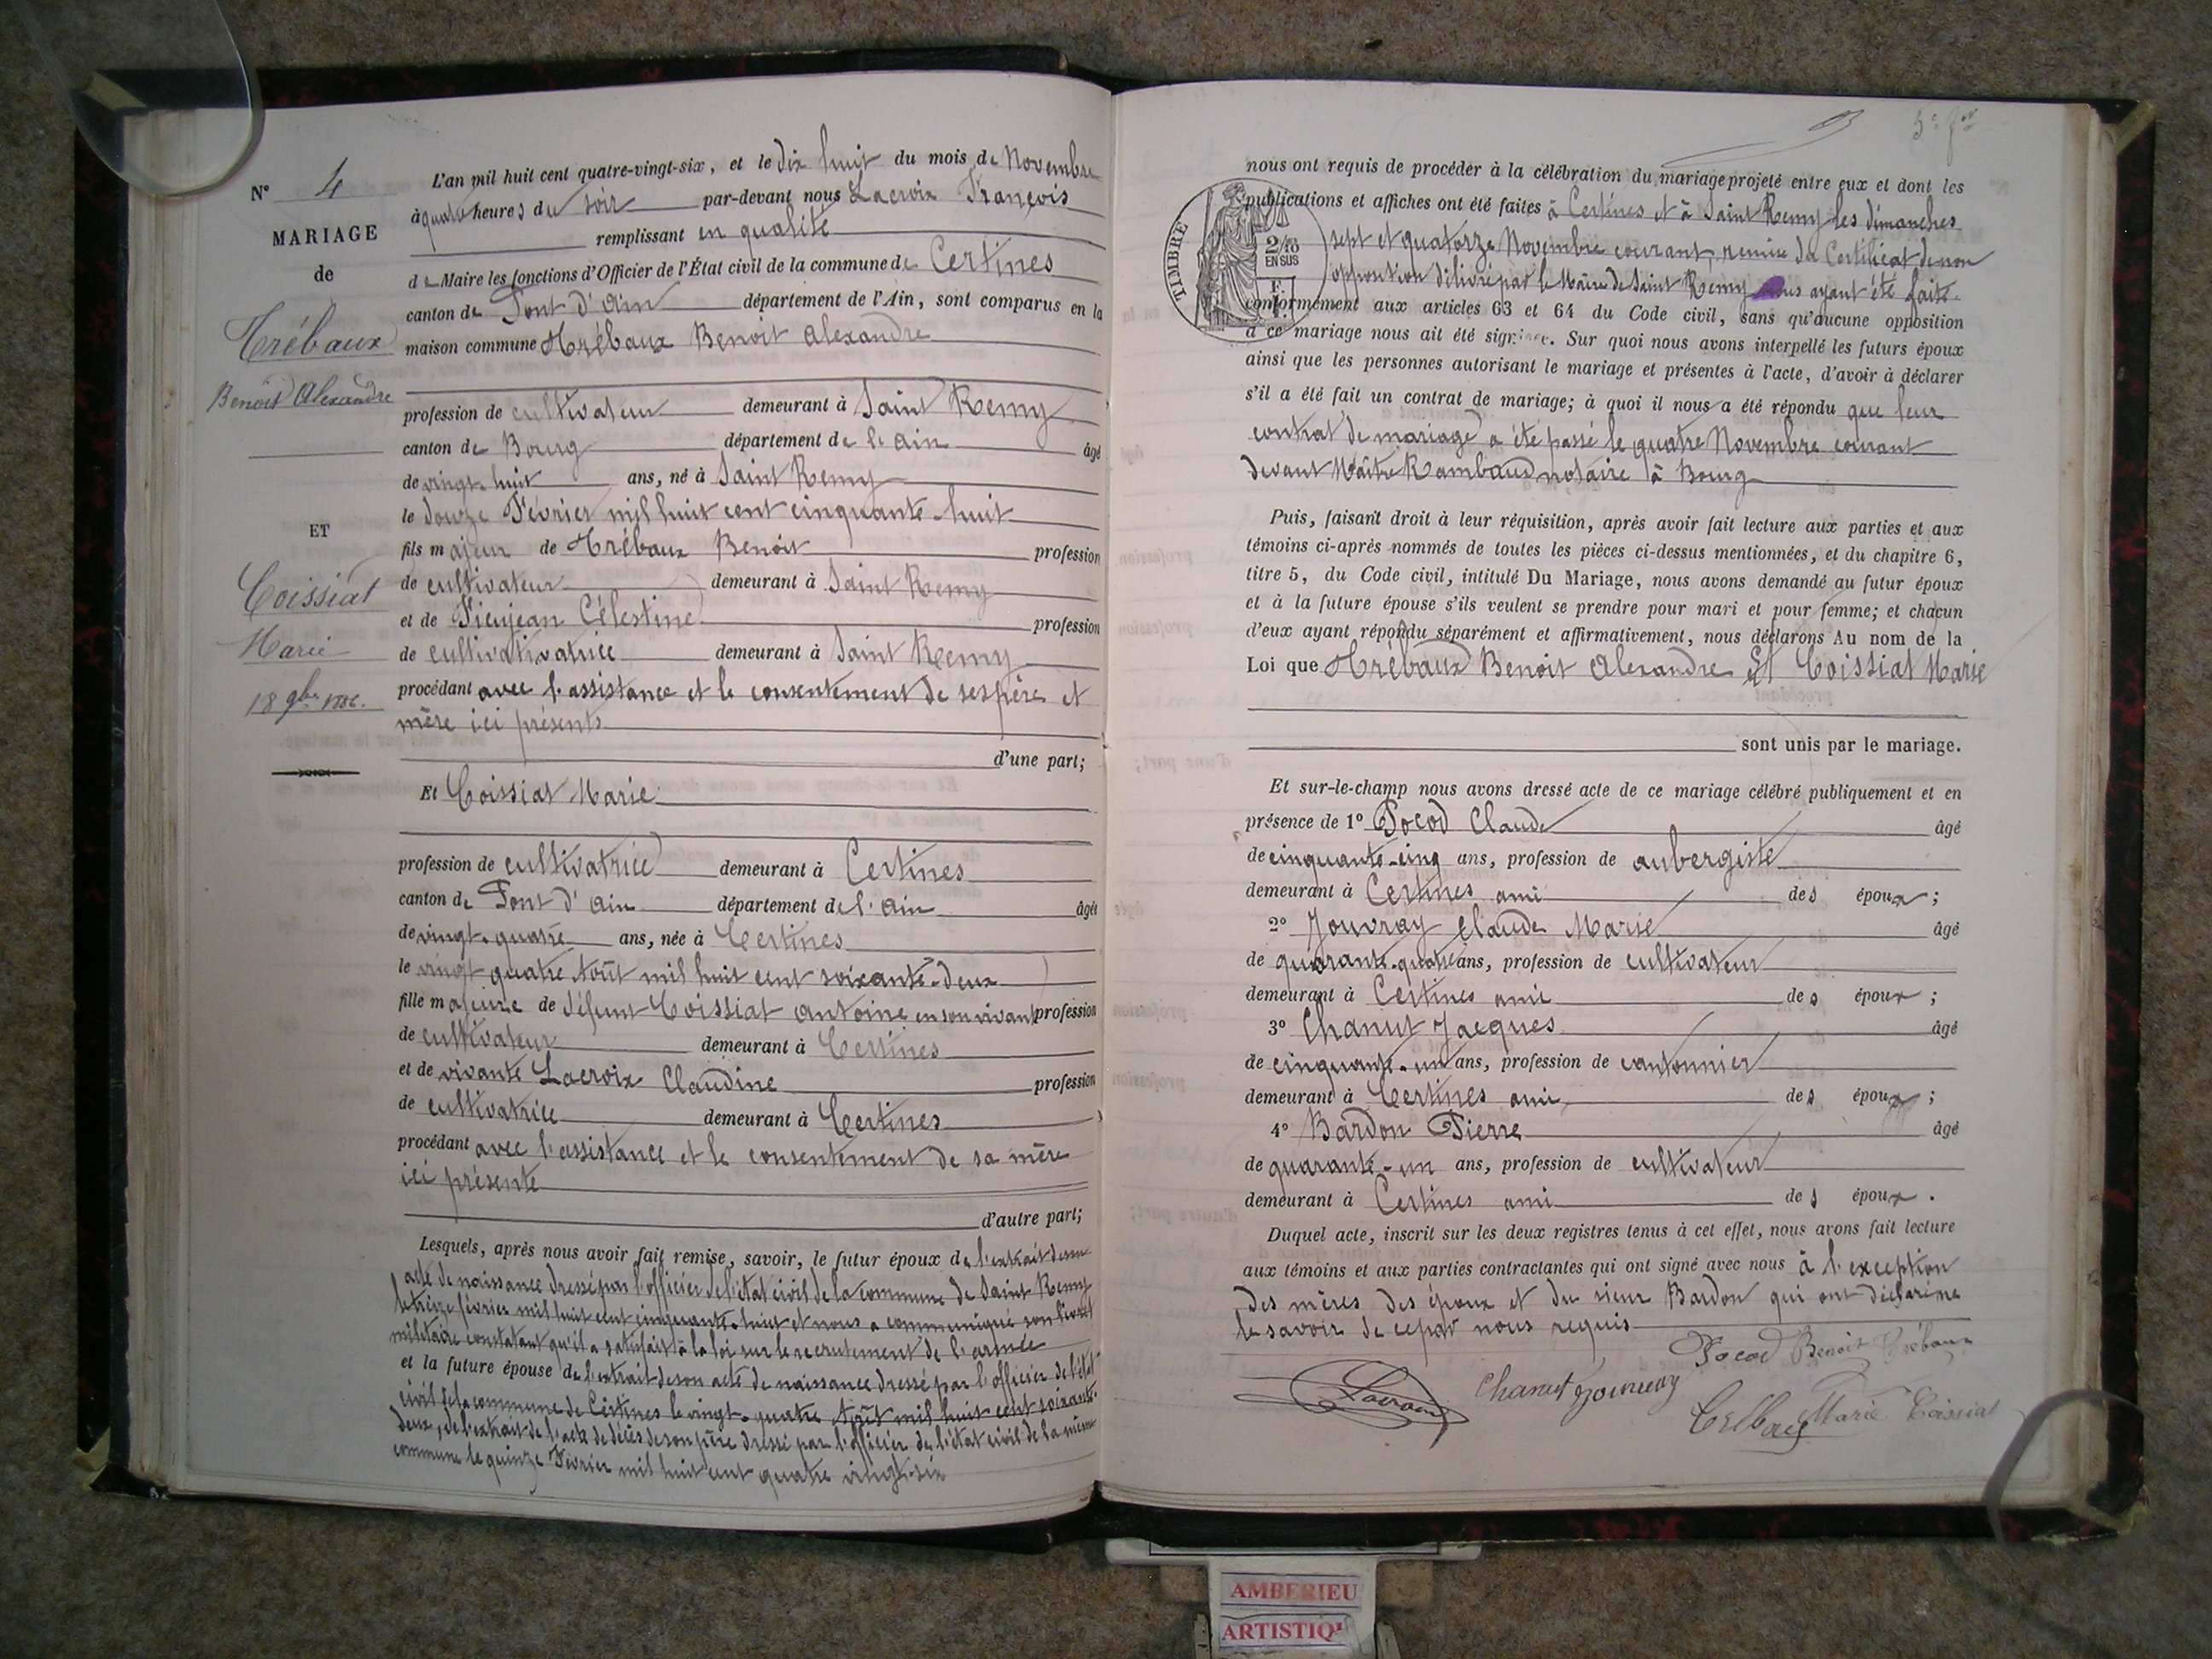 N° 4
MARIAGE
de
Trébaux
Benoit Alexandre
ET
Coissiat
Marie
18 9bre 1886.
L'an mil huit cent quatre-vingt-six, et le dix huit du mois de Novembre
à quatre heures du soir par-devant nous Lacroix François
remplissant en qualité
de Maire les fonctions d'Officier de l'État civil de la commune de Certines
canton de Pont d'Ain département de l'Ain, sont comparus en la
maison commune Trébaux Benoit Alexandre
profession de cultivateur demeurant à Saint Remy
canton de Bourg département de l'Ain âgé
de vingt-huit ans, né à Saint Remy
le douze Février mil huit cent cinquante-huit
fils majeur de Trébaux Benoit profession
de cultivateur demeurant à Saint Remy
et de Vieujean Célestine profession
de cultivativatrice demeurant à Saint Remy
procédant avec l'assistance et le consentement de ses père et
mère ici présents
d'une part;
Et Coissiat Marie
profession de cultivatrice demeurant à Certines
canton de Pont d'Ain département de l'Ain âgée
de vingt-quatre ans, née à Certines
le vingt quatre Août mil huit cent soixante-deux
fille majeure de défunt Coissiat Antoine en son vivant profession
de cultivateur demeurant à Certines
et de vivante Lacroix Claudine profession
de cultivatrice demeurant à Certines
procédant avec l'assistance et le consentement de sa mère
ici présente
d'autre part;
Lesquels, après nous avoir fait remise, savoir, le futur époux de l'extrait de son
acte de naissance dressé par l'officier de l'état civil de la commune de Saint Remy
le treize février mil huit cent cinquante-huit et nous a communiqué son livret
militaire constatant qu'il a satisfait à la loi sur le recrutement de l'armée
et la future épouse de l'extrait de son acte de naissance dressé par l'officier de l'état
civil de la commune de Certines le vingt-quatre Août mil huit cent soixante-
deux, de l'extrait de l'acte de décès de son père dressé par l'officier de l'état civil de la même
commune le quinze Février mil huit cent quatre vingt-six
nous ont requis de procéder à la célébration du mariage projeté entre eux et dont les
publications et affiches ont été faites à Certines et à Saint Remy les dimanches
sept et quatorze Novembre courant, remise du Certificat de non
opposition délivré par le Maire de Saint Remy nous ayant été faite
conformément aux articles 63 et 64 du Code civil, sans qu'aucune opposition
à ce mariage nous ait été signifiée. Sur quoi nous avons interpellé les futurs époux
ainsi que les personnes autorisant le mariage et présentes à l'acte, d'avoir à déclarer
s'il a été fait un contrat de mariage; à quoi il nous a été répondu que leur
contrat de mariage a été passé le quatre Novembre courant
devant Maître Rambaud notaire à Bourg
TIMBRE
2/10
EN SUS
Puis, faisant droit à leur réquisition, après avoir fait lecture aux parties et aux
témoins ci-après nommés de toutes les pièces ci-dessus mentionnées, et du chapitre 6,
titre 5, du Code civil, intitulé Du Mariage, nous avons demandé au futur époux
et à la future épouse s'ils veulent se prendre pour mari et pour femme; et chacun
d'eux ayant répondu séparément et affirmativement, nous déclarons Au nom de la
Loi que Trébaux Benoit Alexandre Et Coissiat Marie
sont unis par le mariage.
Et sur-le-champ nous avons dressé acte de ce mariage célébré publiquement et en
présence de 1° Pocod Claude âgé
de cinquante-cinq ans, profession de aubergiste
demeurant à Certines ami des époux;
2° Jouvray Claude Marie âgé
de quarante-quatre ans, profession de cultivateur
demeurant à Certines ami des époux;
3° Chanut Jacques âgé
de cinquante-un ans, profession de cantonnier
demeurant à Certines ami des époux;
4° Bardon Pierre âgé
de quarante-un ans, profession de cultivateur
demeurant à Certines ami des époux.
Duquel acte, inscrit sur les deux registres tenus à cet effet, nous avons fait lecture
aux témoins et aux parties contractantes qui ont signé avec nous à l'exception
des mères des époux et du sieur Bardon qui ont déclaré ne
le savoir de ce par nous requis
Pocod Benoit Trébaux
Lacroix Chanut Jouvray
Marie Coissiat
AMBERIEU
ARTISTIQ